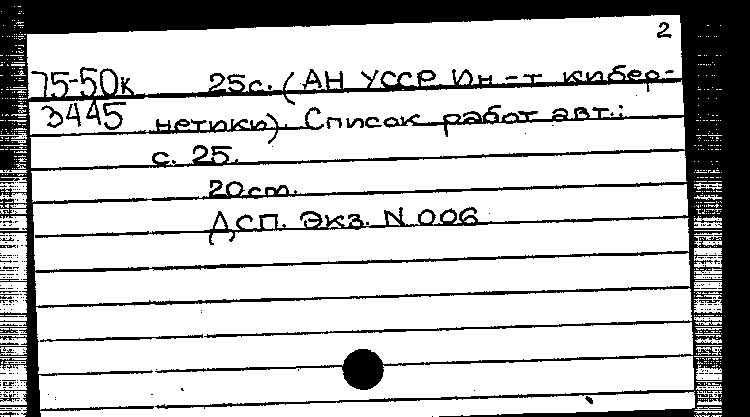 2
75-50к 25с. (АН УССР Ин-т кибер-
3445 нетики). Список работ авт.:
с. 25.
20cm.
ДСП. Экз. N 006